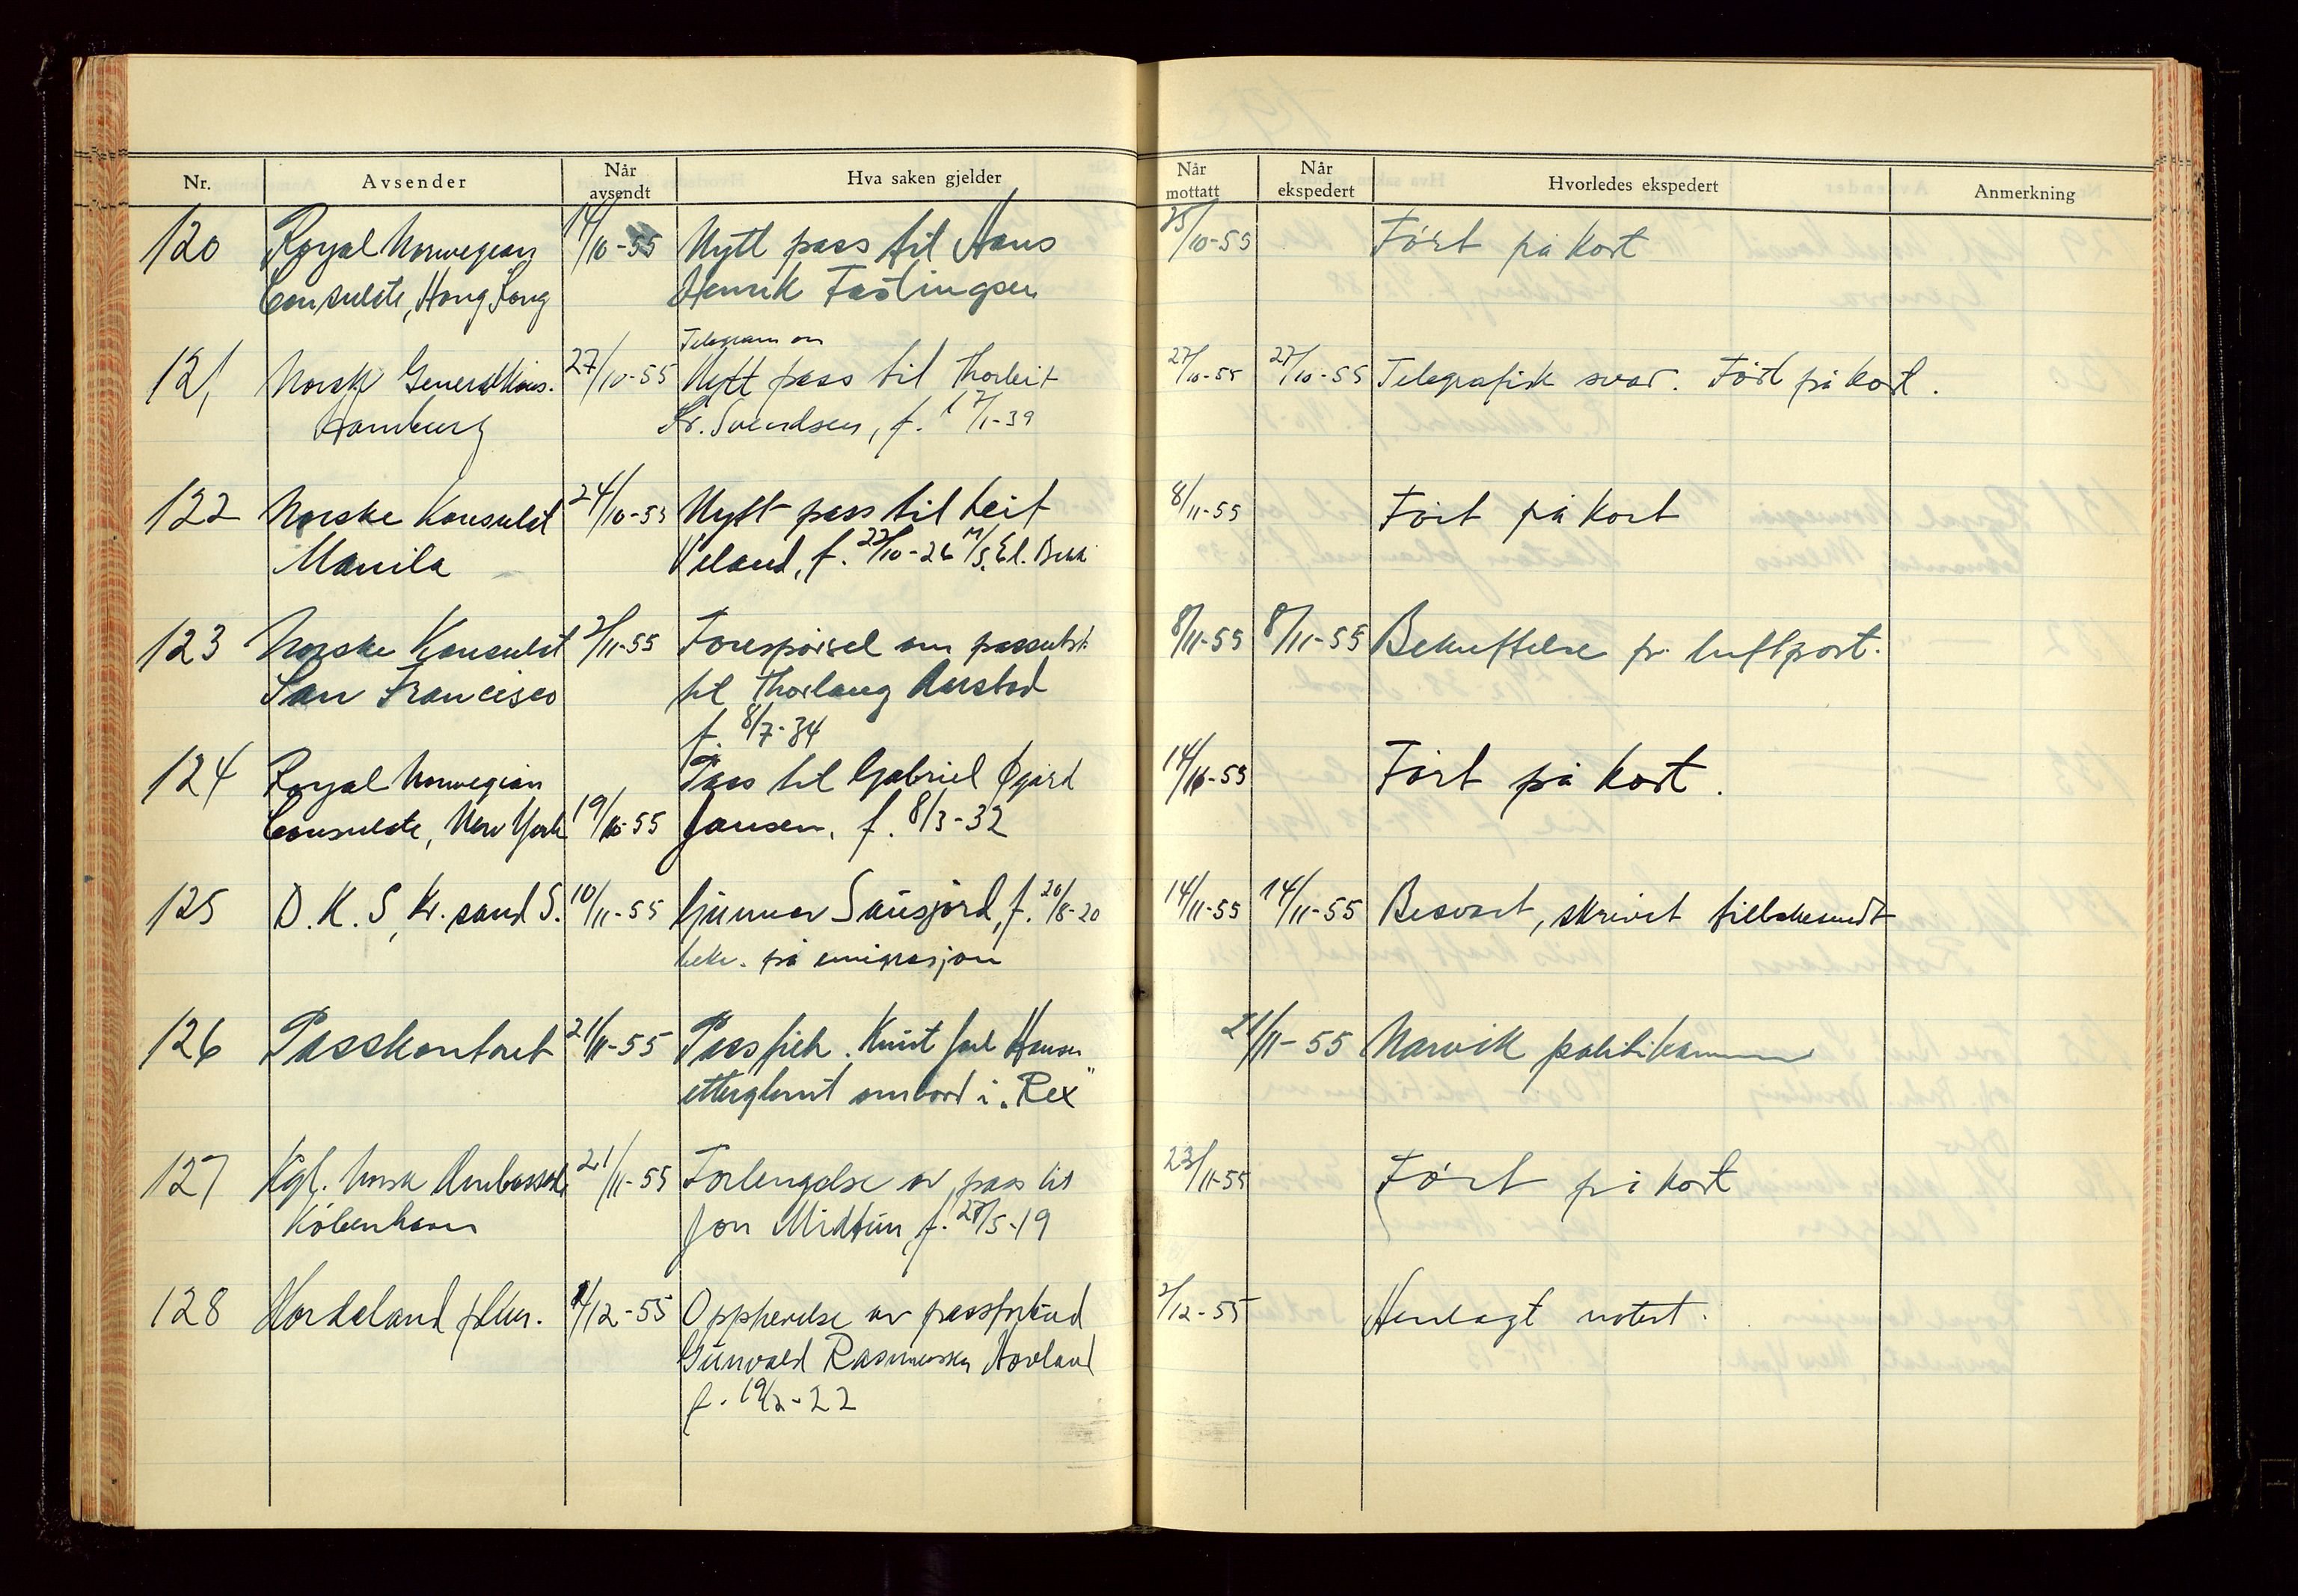 Nr. Avsender Når avsendt Hva saken gjelder Når mottatt Når ekspedert Hvorledes ekspedert Anmerkning
120 Royal Norwegian 14/10-55 Nytt pass til Hans 25/10-55 Ført på kort
Consulate, Hong Kong Henrik Fastingsen
Telegram om
121 Norsk Generalkons. 27/10-55 Nytt pass til Thorleit 27/10-55 27/10-55 Telegrafisk svar. Ført på kort.
Hamburg Kr. Svendsen, f. 17/1-39
122 Norske Konsulat 24/10-55 Nytt pass til Leif 8/11-55 Ført på kort
Manila Veland, f. 22/10-26 M/S. El.
123 Norske Konsulat 2/11-55 Forespørsel om passutst. 8/11-55 8/11-55 Bekreftelse pr. luftpost.
San Francisco til Thorlaug Aarstad
f. 8/7-34
124 Royal Norwegian Pass til Gabriel Øgård 14/11-55 Ført på kort.
Consulate, New York 19/10-55 Jansen, f. 8/3-32
125 D.K.S, Kr.sand S. 10/11-55 Gunnar Sausjord, f. 20/8-20 14/11-55 14/11-55 Besvart, skrivet tilbakesendt
bekr. på emigrasjon
126 Passkontoret 21/11-55 Pass tilh. Knut Jarl Hansen 21/11-55 Narvik politikammer
etterglemt ombord i "Rex"
127 Kgl. Norsk Ambassade 21/11-55 Forlengelse av pass til 23/11-55 Ført på kort
København Jon Midtun, f. 28/5-19
128 Hordaland pkmr. 1/12-55 Opphevelse av passforbud 2/12-55 Henlagt notert.
Gunvald Rasmussen Hovland
f. 19/2-22